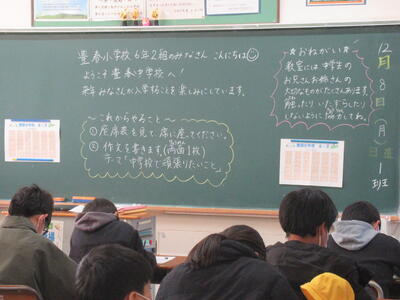 豊春小学校 6年2組のみなさん こんにちは
ようこそ 豊春中学校へ!
来年 みなさんが入学することを楽しみにしています。
~これからやること~
① 座席表を見て、席に座ってください。
② 作文を書きます。(両面1枚)
テーマ「中学校で頑張りたいこと」
☆おねがい☆
教室には中学生の
お兄さんお姉さんの
大切なものがたくさんあります。
触ったりいたずらしたり
しないように協力してね。
12
月
8
日
(月)
日直
1
班